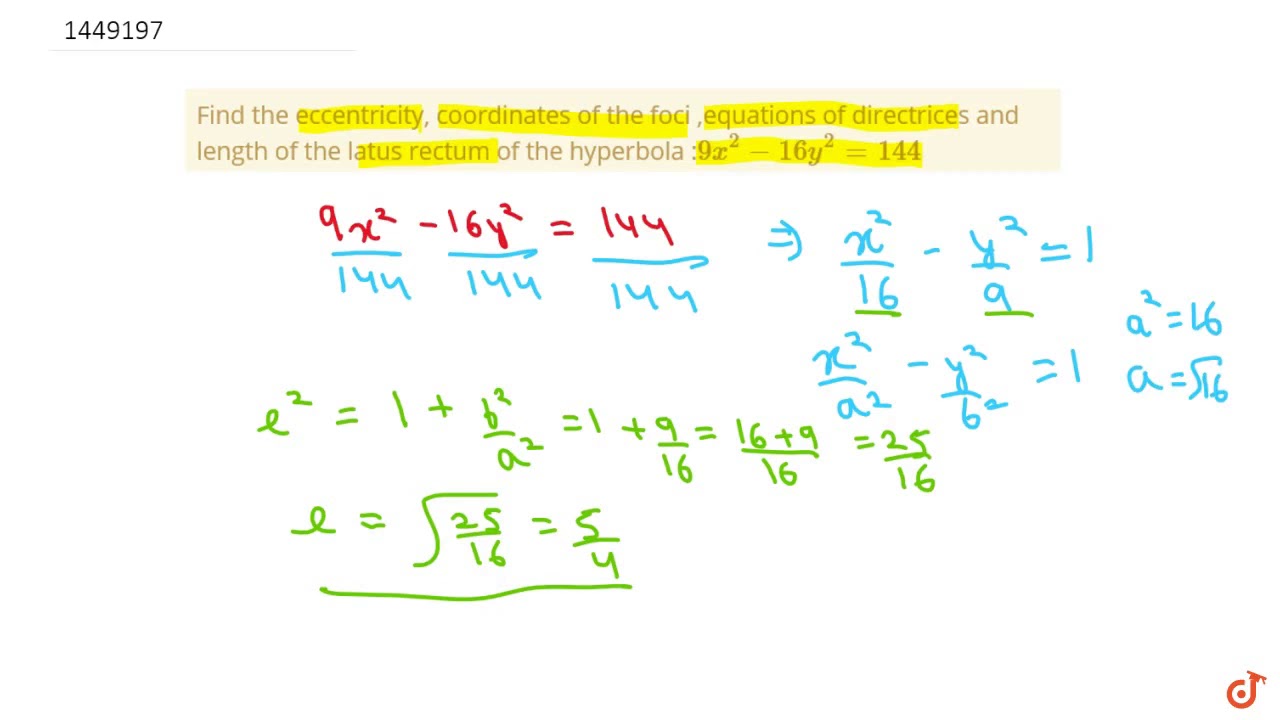 1449197
Find the eccentricity, coordinates of the foci ,equations of directrices and
length of the latus rectum of the hyperbola :9x² − 16y² = 144
9x²/144 - 16y²/144 = 144/144 ⇒ x²/16 - y²/9 = 1
a² = 16
x²/a² - y²/b² = 1
a = √16
e² = 1 + b²/a² = 1 + 9/16 = 16+9/16 = 25/16
e = √25/16 = 5/4